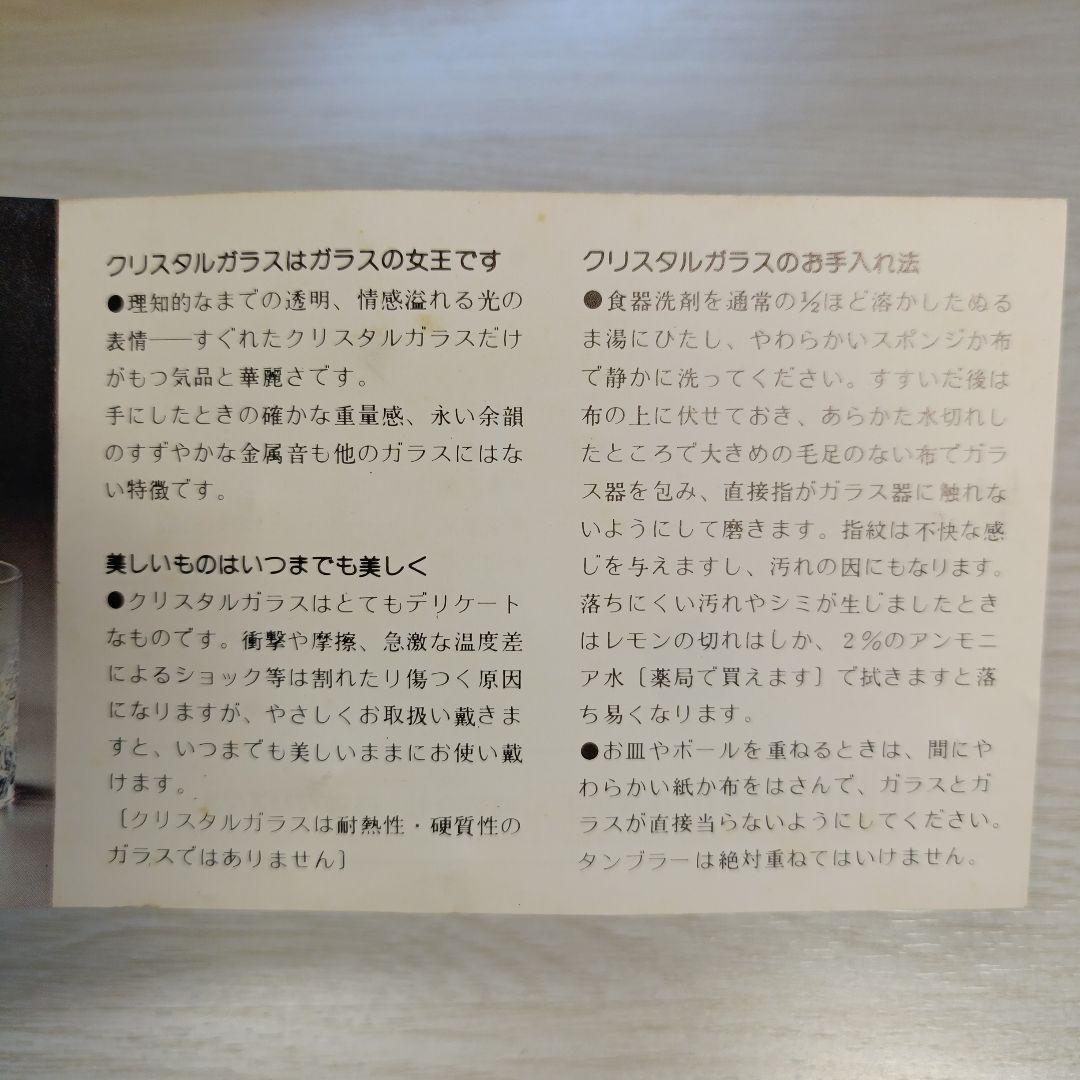 クリスタルガラスはガラスの女王です
●理知的なまでの透明、情感溢れる光の
表情──すぐれたクリスタルガラスだけ
がもつ気品と華麗さです。
手にしたときの確かな重量感、永い余韻
のすずやかな金属音も他のガラスにはな
い特徴です。
美しいものはいつまでも美しく
●クリスタルガラスはとてもデリケート
なものです。衝撃や摩擦、急激な温度差
によるショック等は割れたり傷つく原因
になりますが、やさしくお取扱い戴きま
すと、いつまでも美しいままにお使い戴
けます。
〔クリスタルガラスは耐熱性・硬質性の
ガラスではありません〕
クリスタルガラスのお手入れ法
●食器洗剤を通常の½ほど溶かしたぬる
ま湯にひたし、やわらかいスポンジか布
で静かに洗ってください。すすいだ後は
布の上に伏せておき、あらかた水切れし
たところで大きめの毛足のない布でガラ
ス器を包み、直接指がガラス器に触れな
いようにして磨きます。指紋は不快な感
じを与えますし、汚れの因にもなります。
落ちにくい汚れやシミが生じましたとき
はレモンの切れはしか、2%のアンモニ
ア水〔薬局で買えます〕で拭きますと落
ち易くなります。
●お皿やボールを重ねるときは、間にや
わらかい紙か布をはさんで、ガラスとガ
ラスが直接当らないようにしてください。
タンブラーは絶対重ねてはいけません。